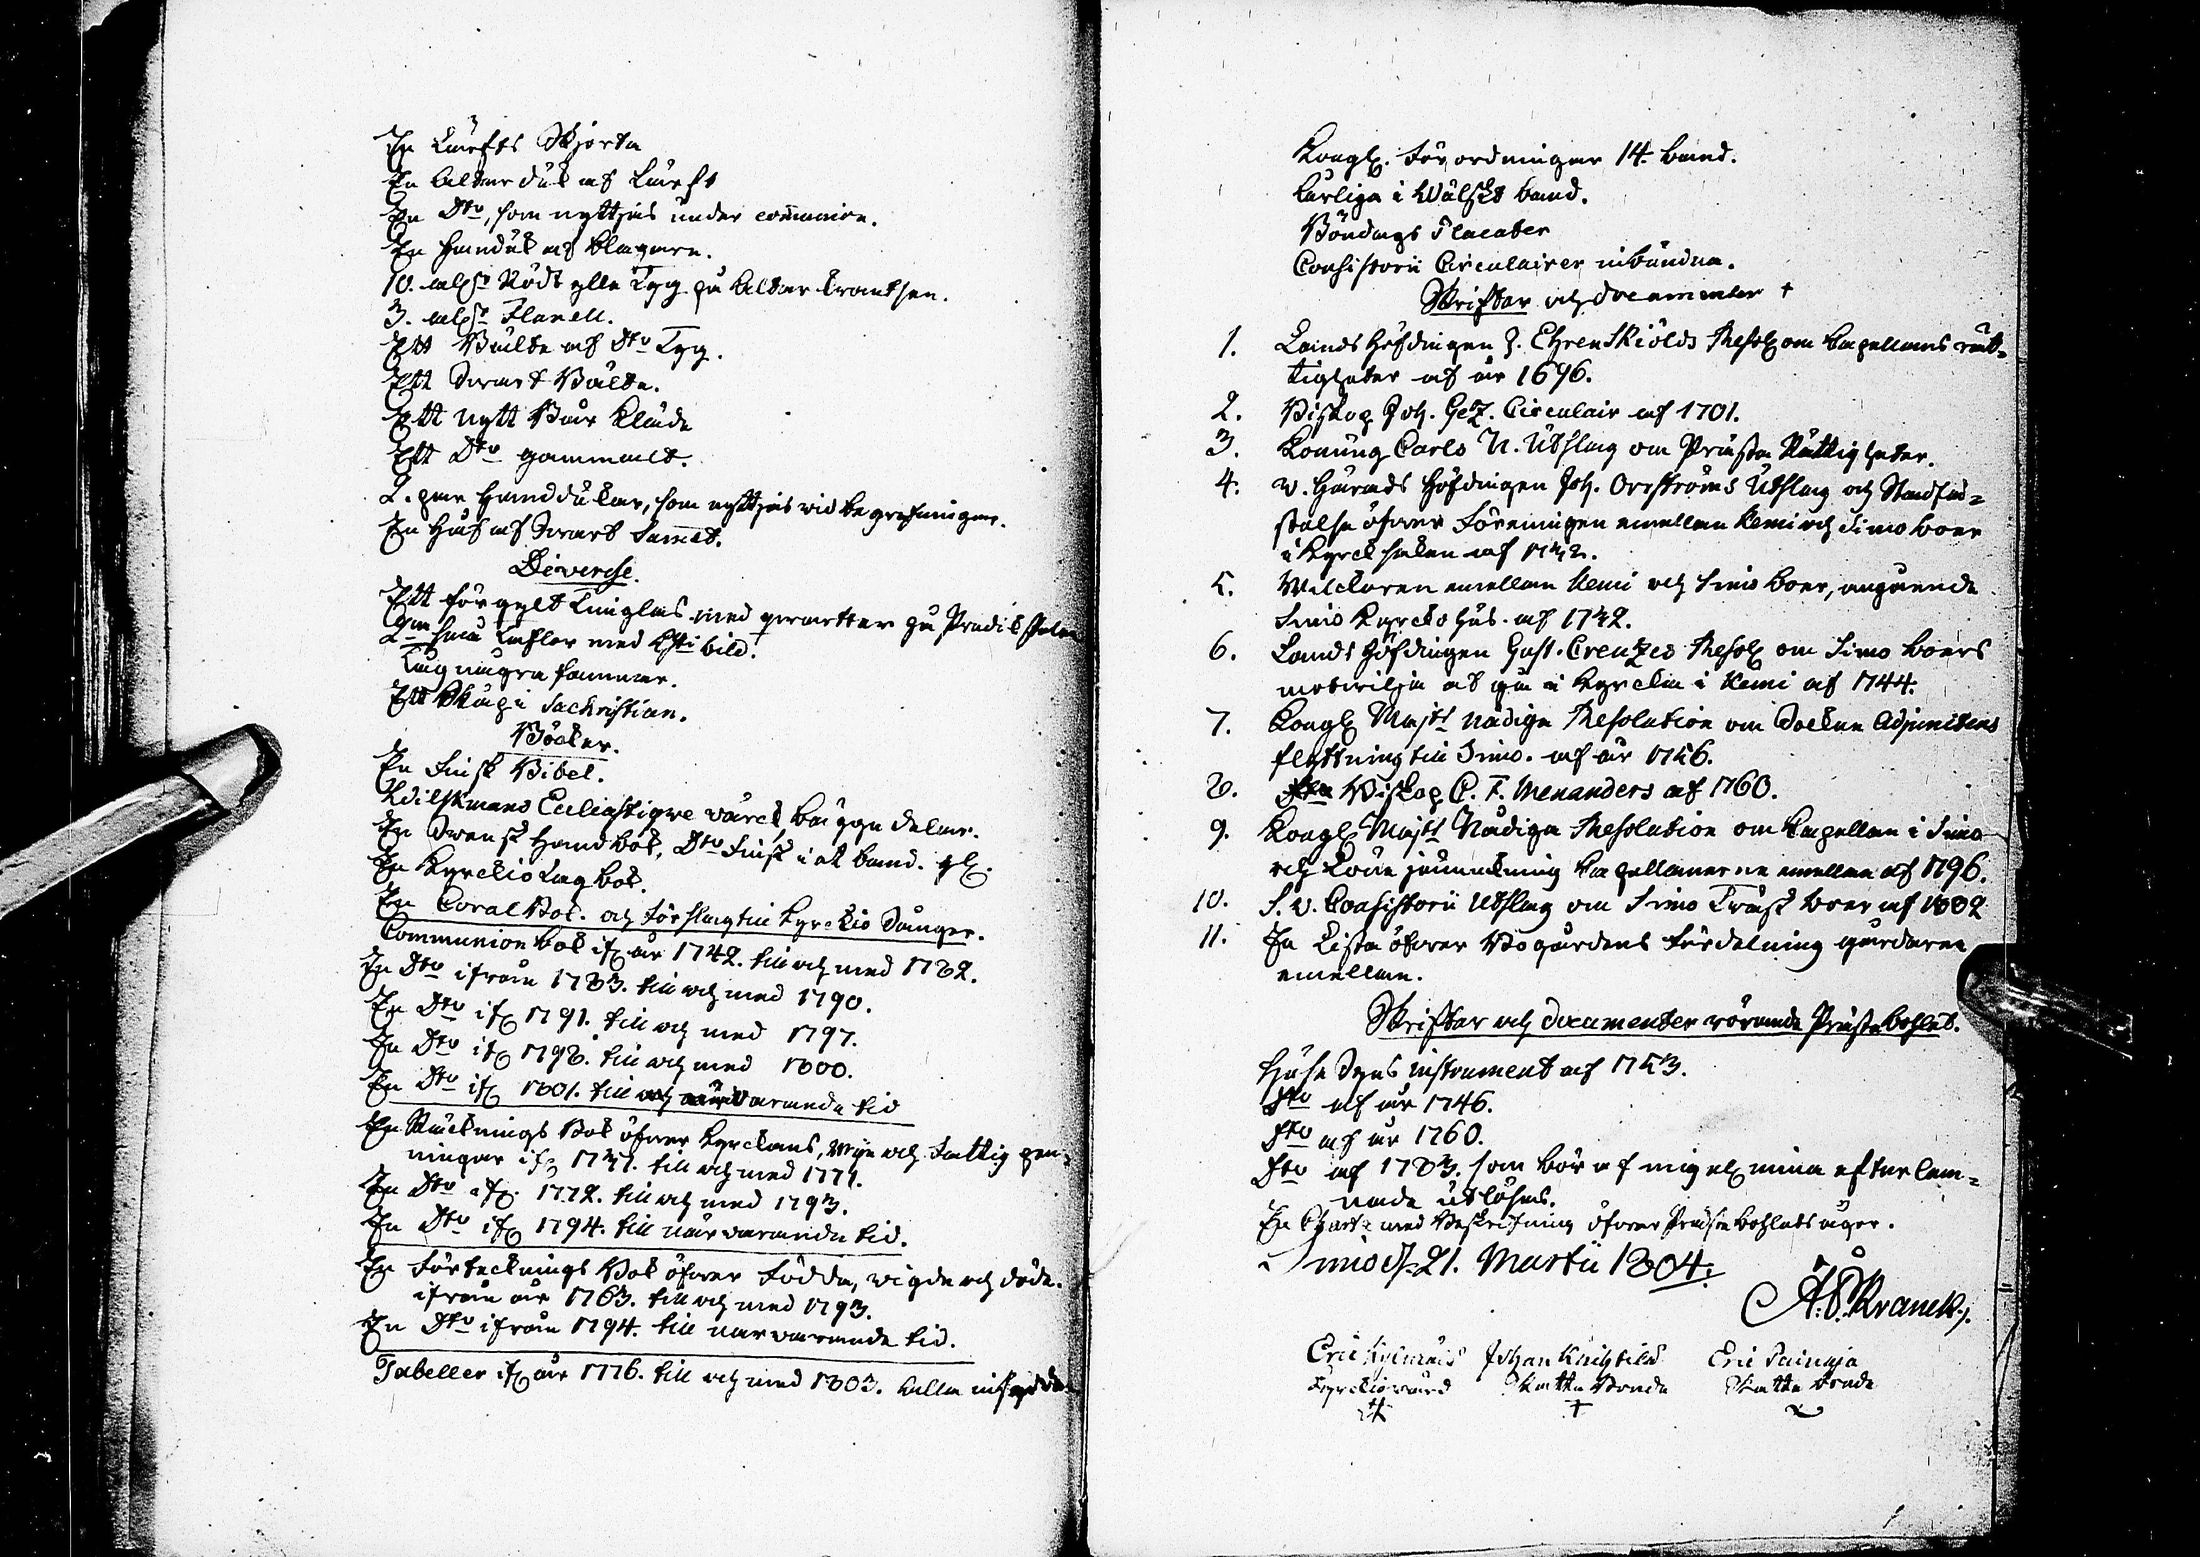 En Lärfts Skjorta
En Altar duk af Lärft
En Dto, som nyttjas under communion.
En Handuk af blagarn.
10. aln:r Rödt ylle Tyg på Altar krantsen.
3. aln:r Flanell.
Ett Bälte af Dto Tyg.
Ett Swart Bälte.
Ett nytt Bår Kläde
Ett Dto gammalt.
2. par Handdukar, som nyttjas vid begrafningar.
En Håf af Swart Sammet.
Diverse.
Ett förgylt Timglas med qwarter på Predikstolen
2ne små taflor med Xsti bild.
Tåg några famnar.
Ett Skåp i Sachristian.
Böcker.
En Finsk Bibel.
Wilskmans Ecclesiastique värck bägge delar.
En Swensk Handbok, Dto Finsk i et band.
En Kyrckio Lag bok.
En Coral Bok. och förslag till Kyrckio Sånger.
Communion bok ifr. år 1742. till och med 1782.
En Dto ifrån 1783. till och med 1790.
En Dto ifr. 1791. till och med 1797.
En Dto ifr. 1798. till och med 1800.
En Dto ifr. 1801. till och närvarande tid
En Räcknings Bok öfwer Kyrckans, Wijn och Fattig pen-
ningar ifr. 1737. till och med 1771.
En Dto ifr. 1772. till och med 1793.
En Dto ifr. 1794. till närvarande tid.
En Förtecknings Bok öfwer Födda, vigde och döde.
ifrån år 1763. till och med 1793.
En Dto ifrån 1794. till närvarande tid.
Tabeller ifr. år 1776. till och med 1803.
Kongl. Förordningar 14. band.
Årliga i Wälskt band.
Böndags Placater
Consistorii Circulairer inbundna.
Skrifter och documenter +
1. Lands Höfdingen J. Ehrenskiölds Resol. om Capellans rät-
tigheter af år 1696.
2. Biskop Joh. Gez. Circulair af 1701.
3. Konung Carls Utslag om Präste Rättigheter.
4. v. Härads Höfdingen Joh. Orrströms Utslag och Stadfäs-
telse öfwer Föreningen emellan Kemi och Simo boer
i Kyrck saken af 1742.
5. Wilckoren emellan Kemi och Simo boer, angående
Simo Kyrcko hus. af 1742.
6. Lands Höfdingen Gust. Creutzes Resol. om Simo boers
motvilja at gå i Kyrckan i Kemi af 1744.
7. Kongl. Majts Nådiga Resolution om Socken Adjunctens
flyttning till Simo. af år 1756.
8. Biskop C. F. Menanders af 1760.
9. Kongl. Majts Nådiga Resolution om Capellan i Simo
och Löne jämckning Capellanerne emellan af 1796.
10. S. v. Consistorii Utslag om Simo Träsk boer af 1802
11. En Lista öfwer Bogårdens fördelning gårdarne
emellan.
Skrifter och documenter rörande Prästebohlet.
Huse Syns instrument af 1753.
Dto af år 1746.
Dto af år 1760.
Dto af 1783. som bör af mig el. mina efterlem-
nade utlösas.
En Charta med Beskrifning öfwer Präste bohlets ägor.
Simo d. 21. Martii 1804.
Kranck.
Eric Johan Eric
Kyrckiovärd Skatte Bonde Skatte bonde